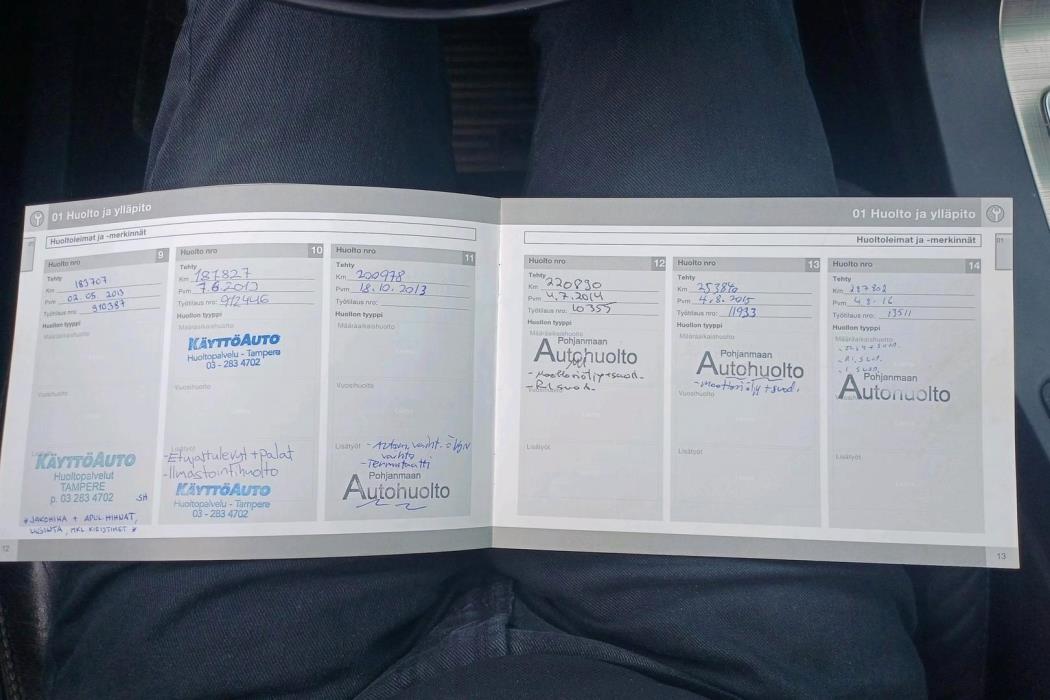 01 Huolto ja ylläpito
Huoltoleimat ja -merkinnät
Huolto nro 9
Tehty
Km 183707
Pvm 02.05.2013
Työtilaus nro: 910387
Huollon tyyppi
Määräaikaishuolto
Vuosihuolto
Lisätyöt
KÄYTTÖAUTO
Huoltopalvelut
TAMPERE
p. 03 283 4702
SH
* JAKOHIHNA + APUL. HIHNAT,
Huolto nro 10
Tehty
Km 187827
Pvm 7.6.2013
Työtilaus nro: 912446
Huollon tyyppi
Määräaikaishuolto
KÄYTTÖAUTO
Huoltopalvelu - Tampere
03 - 283 4702
Vuosihuolto
Lisätyöt
-Etujarrulevyt + palat
-Ilmastointihuolto
KÄYTTÖAUTO
Huoltopalvelu - Tampere
03 - 283 4702
Huolto nro 11
Tehty
Km 200978
Pvm 18.10.2013
Työtilaus nro:
Huollon tyyppi
Määräaikaishuolto
Vuosihuolto
Lisätyöt -Autom. vaiht. öljyn
vaihto
-Termostaatti
Pohjanmaan
Autohuolto
12
01 Huolto ja ylläpito
Huoltoleimat ja -merkinnät
01
Huolto nro 12
Tehty
Km 220830
Pvm 4.7.2014
Työtilaus nro: 10355
Huollon tyyppi
Määräaikaishuolto
Pohjanmaan
Autohuolto
-Moottoriöljy+suod.
-RI.suod.
Vuosihuolto
Lisätyöt
Huolto nro 13
Tehty
Km 253840
Pvm 4.8.2015
Työtilaus nro: 11933
Huollon tyyppi
Määräaikaishuolto
Pohjanmaan
Autohuolto
-moottoriöljy + suod.
Vuosihuolto
Lisätyöt
Huolto nro 14
Tehty
Km
Pvm
Työtilaus nro: 13511
Huollon tyyppi
Määräaikaishuolto
Pohjanmaan
Autohuolto
Vuosihuolto
Lisätyöt
13